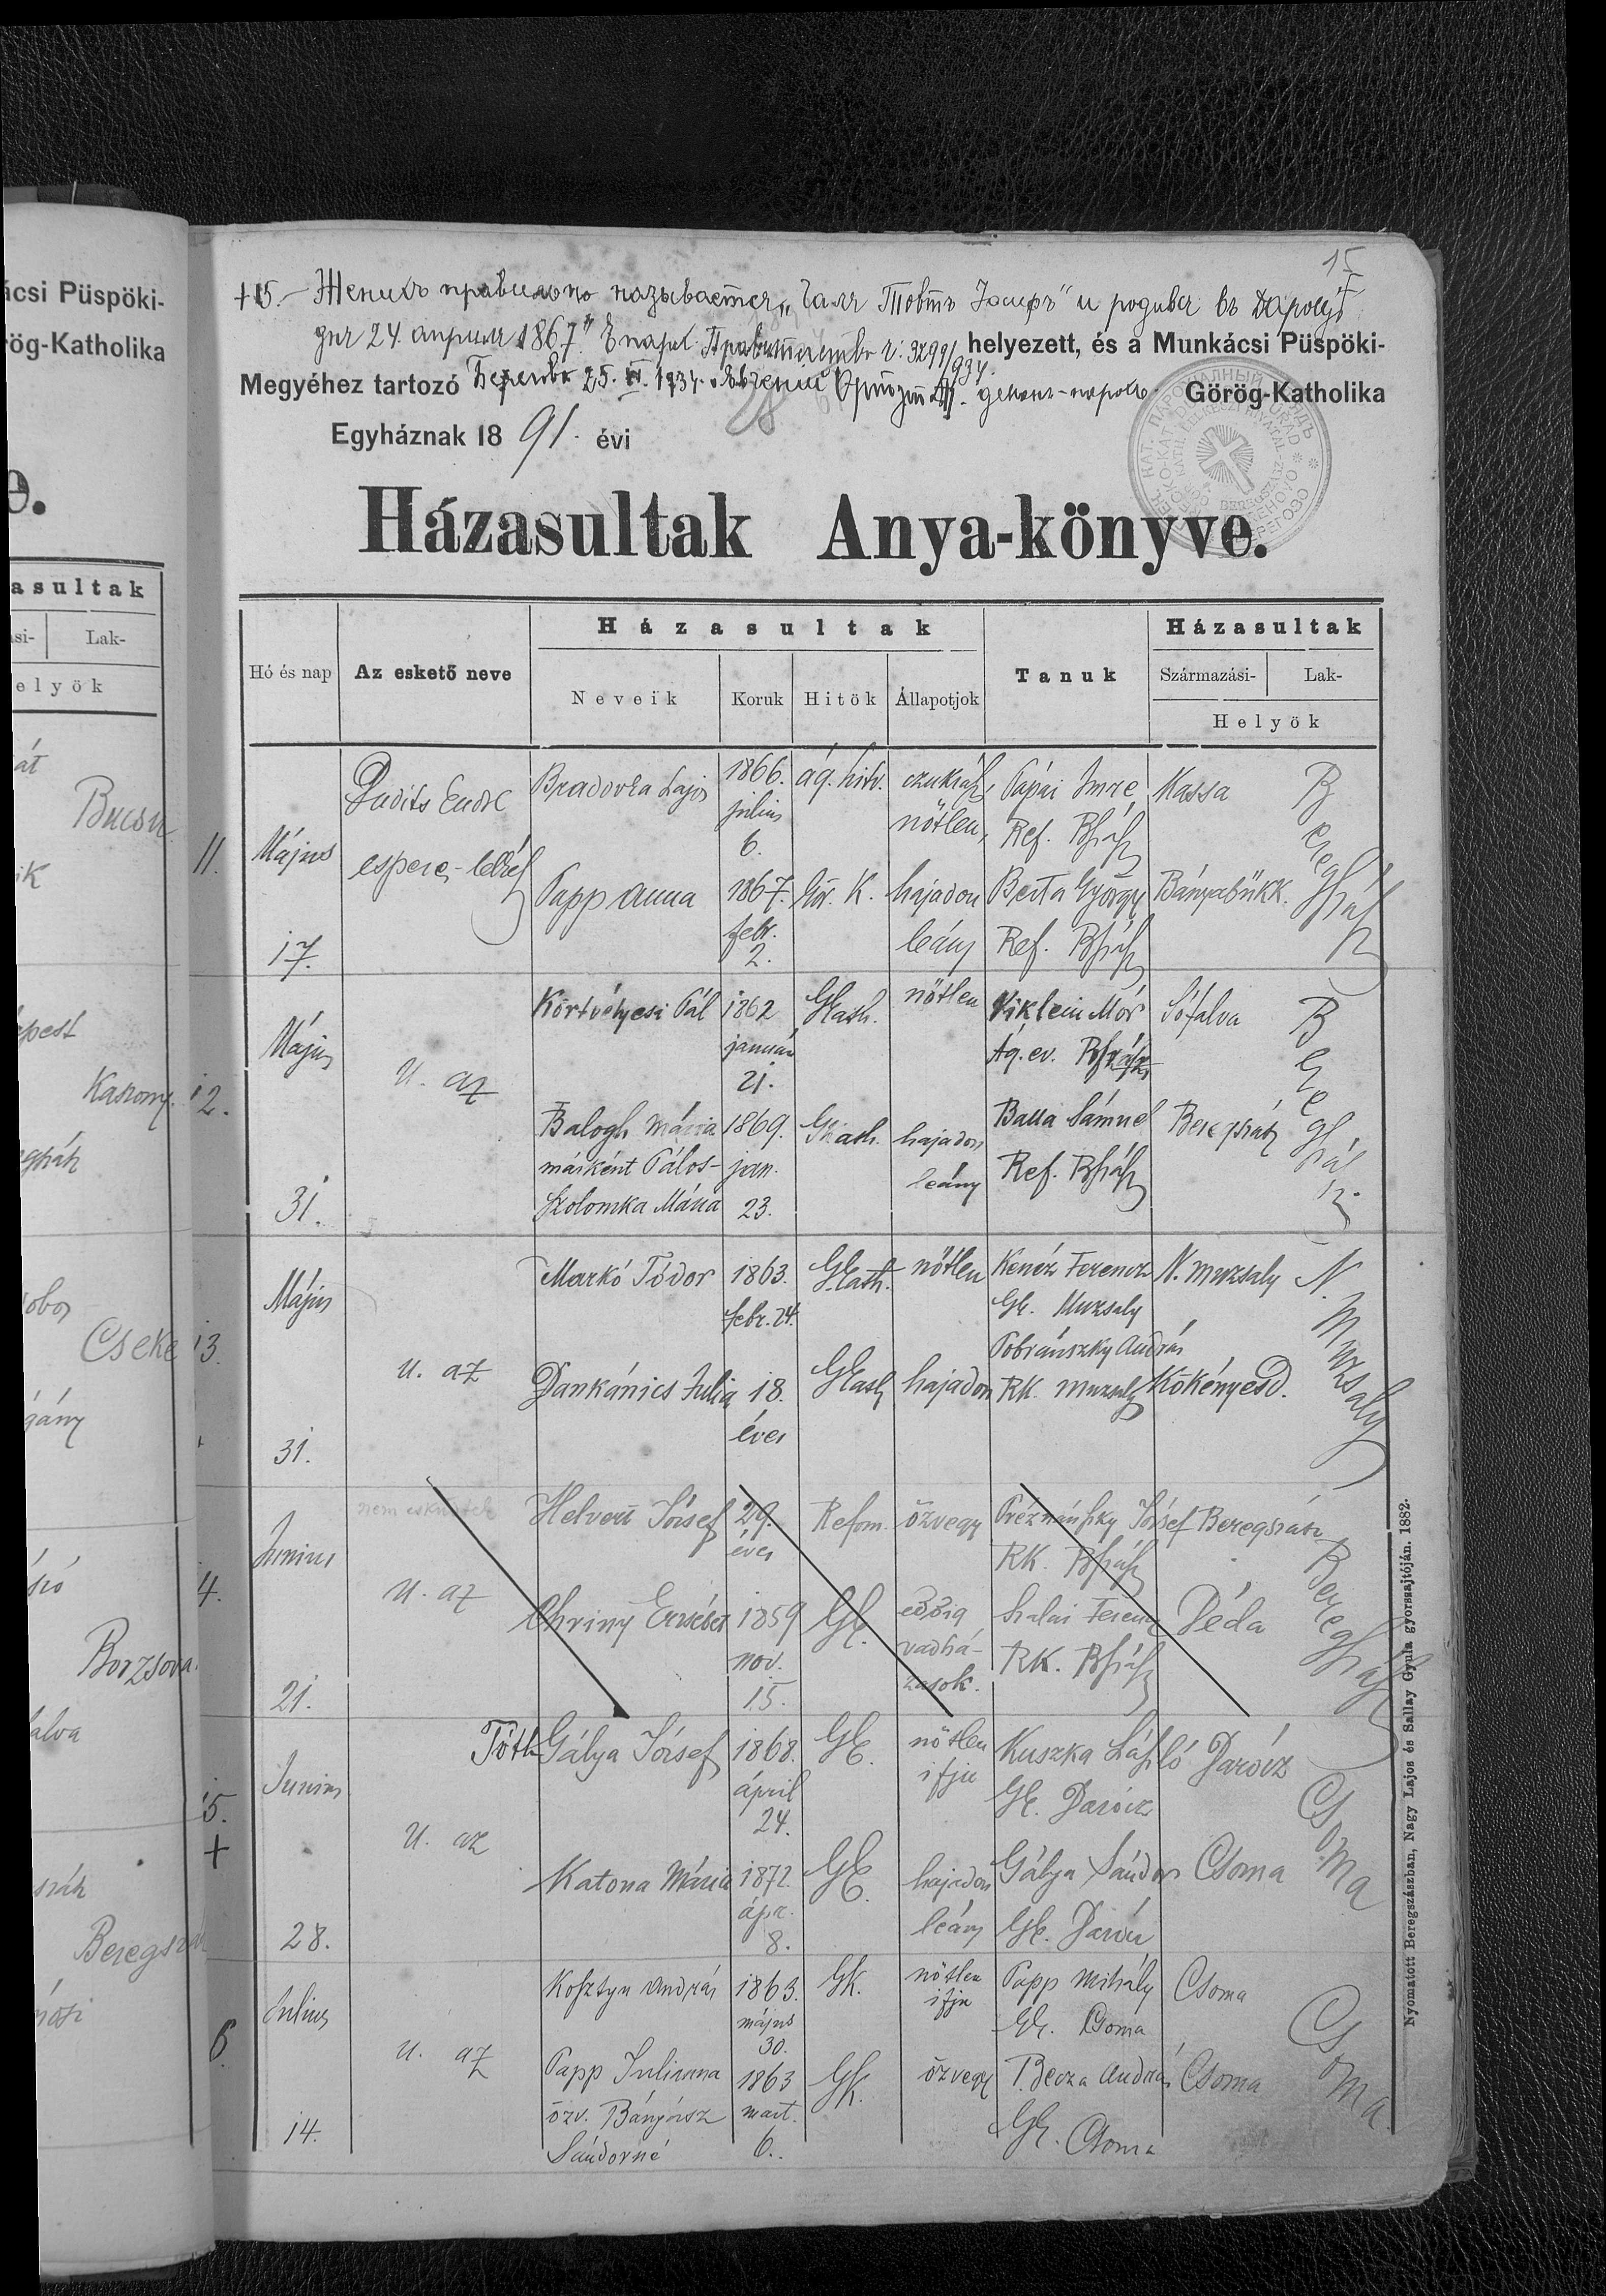 15
+15.- Женихъ правильно называется „Галя Товтъ Іосифъ" и родився въ Дароцѣ
дня 24 априля 1867." Епарх. Правительство ч. 3299/934.
helyezett, és a Munkácsi Püspöki-
Megyéhez tartozó Берегово 25. VI. 1934. декань-парохъ Görög-Katholika
Egyháznak 1891. évi
Házasultak Anya-könyve.
Hó és nap
Az eskető neve
Házasultak
Neveik
Koruk
Hitök
Állapotjok
Tanuk
Házasultak
Származási-
Lak-
Helyök
11. Május 17.
Dudits Endre
esperes-lelkész
Bradovka Lajos 1866. július 6. ág. hitv. czukrász, nőtlen, Pápai Imre Ref. Bszász Kassa
Papp Anna 1867. febr. 2. Gör. K. hajadon leány Berta György Ref. Bszász Bányabükk.
Beregszász
12. Május 31.
U. az
Körtvélyesi Pál 1862 január 21. GKath. nőtlen Viklein Mór Ág. ev. Bszász Sófalva
Balogh Mária másként Pálos- Szolomka Mária 1869. jan. 23. GKath. hajadon leány Balla Sámuel Ref. Bszász Beregszász
Beregszász
13. Május 31.
U. az
Markó Tódor 1863. febr. 24. GKath. nőtlen Kenéz Ferencz GK. Muzsaly N. Muzsaly
Dankánics Julia 18. éves GKath hajadon Pobránszky András RK. Muzsaly Kökényesd.
N. Muzsaly
4. Junius 21.
nem esküdtek
U. az
Helvei József 29. éves Refom. özvegy Préznánszky József RK. Bszász Beregszász
Chriny Erzsébet 1859 nov. 15. GK. eddig vadházasok. Szalai Ferencz RK. Bszász Déda
Beregszász
15. + Junius 28.
U. az
Tóth Gálya József 1868. ápril 24. GK. nőtlen ifju Kuszka László GK. Darócz Darócz
Katona Mária 1872. ápr. 8. GK. hajadon leány Gálya Sándor GK. Darócz Csoma
Csoma
6. Julius 14.
U. az
Kosztyu András 1863. május 30. GK. nőtlen ifju Papp Mihály GK. Csoma Csoma
Papp Julianna özv. Bányász Sándorné 1863 mart. 6. GK. özvegy Becza András GK. Csoma Csoma
Csoma
Nyomatott Beregszászban, Nagy Lajos és Sallay Gyula gyorssajtóján. 1882.
ácsi Püspöki-
rög-Katholika
e.
asultak
si-
Lak-
elyök
Bucsu
Kaszony
Cseke
Borzsova
Beregszász